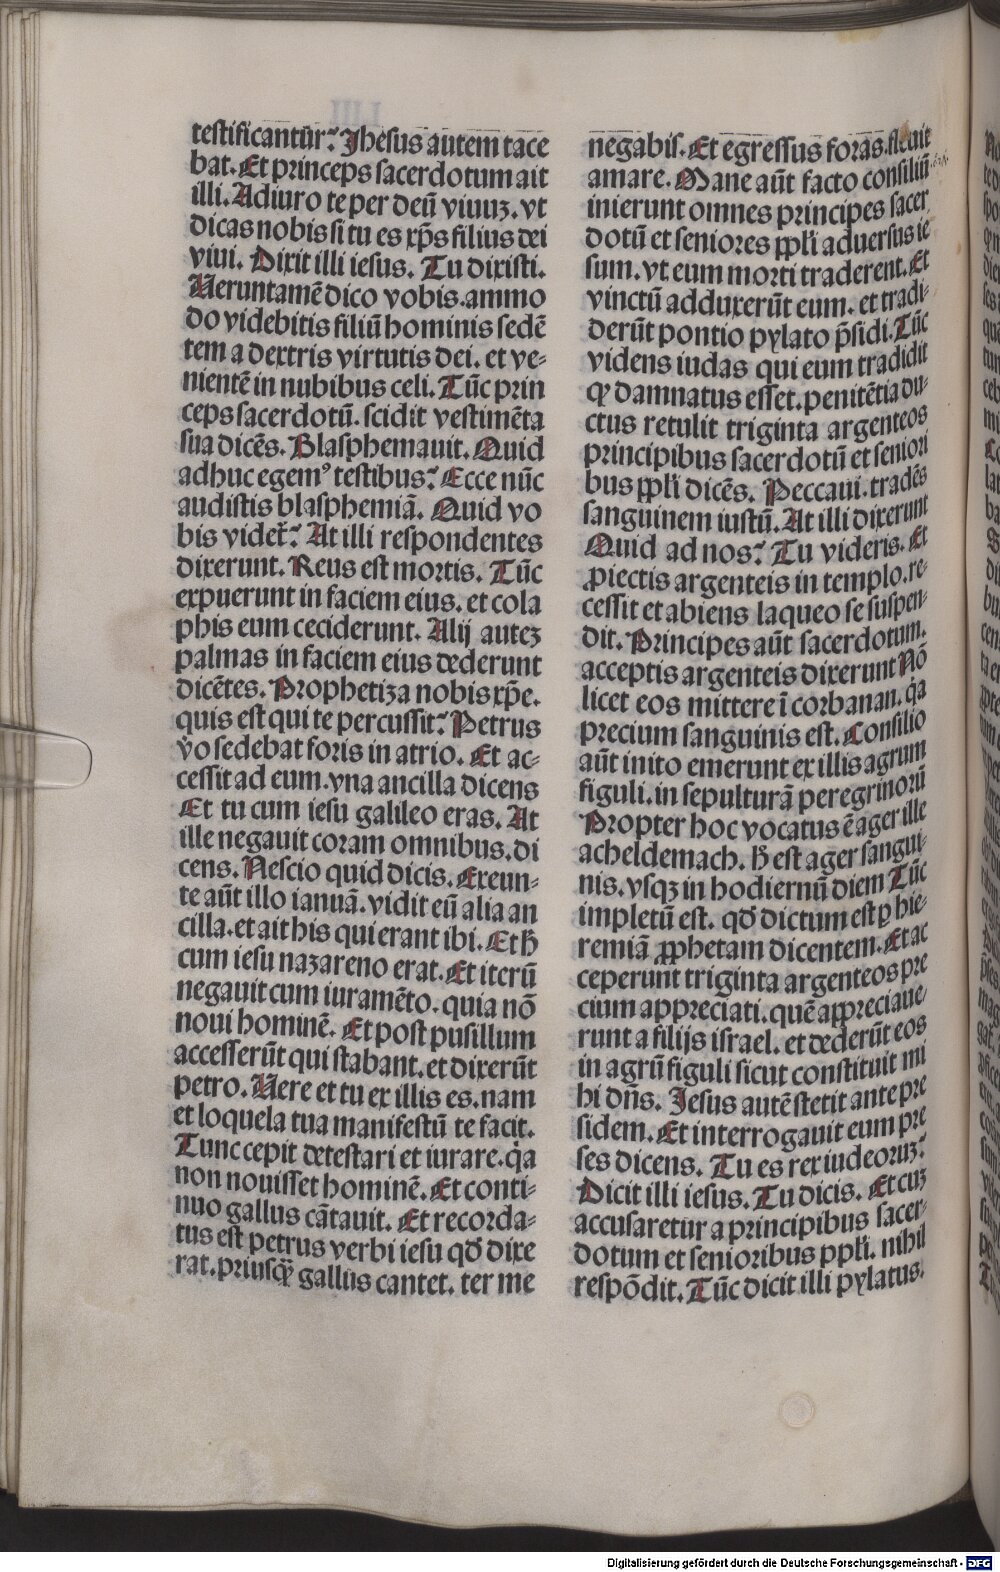 testificantur? Jhesus autem tace
bat. Et princeps sacerdotum ait
illi. Adiuro te per deū viuuꝫ. vt
dicas nobis si tu es xp̄s filius dei
viui. Dixit illi iesus. Tu dixisti.
Ueruntamē dico vobis. ammo
do videbitis filiū hominis sedē
tem a dextris virtutis dei. et ve-
nientē in nubibus celi. Tūc prin
ceps sacerdotū. scidit vestimēta
sua dicēs. Blasphemauit. Quid
adhuc egemꝰ testibus? Ecce nūc
audistis blasphemiā. Quid vo
bis videt̄? At illi respondentes
dixerunt. Reus est mortis. Tūc
expuerunt in faciem eius. et cola
phis eum ceciderunt. Alij auteꝫ
palmas in faciem eius dederunt
dicētes. Prophetiza nobis xp̄e.
quis est qui te percussit? Petrus
v̊o sedebat foris in atrio. Et ac-
cessit ad eum. vna ancilla dicens
Et tu cum iesu galileo eras. At
ille negauit coram omnibus. di
cens. Nescio quid dicis. Exeun-
te aūt illo ianuā. vidit eū alia an
cilla. et ait his qui erant ibi. Et h̄
cum iesu nazareno erat. Et iterū
negauit cum iuramēto. quia nō
noui hominē. Et post pusillum
accesserūt qui stabant. et dixerūt
petro. Uere et tu ex illis es. nam
et loquela tua manifestū te facit.
Tunc cepit detestari et iurare. qͣa
non nouisset hominē. Et conti-
nuo gallus cātauit. Et recorda-
tus est petrus verbi iesu qd̄ dixe
rat. priusqꝫ̄ gallus cantet. ter me
negabis. Et egressus foras. fleuit
amare. Mane aūt facto consiliū
inierunt omnes principes sacer
dotū et seniores pp̄li aduersus ie
sum. vt eum morti traderent. Et
vinctū adduxerūt eum. et tradi-
derūt pontio pylato p̄sidi. Tūc
videns iudas qui eum tradidit
qꝫ damnatus esset. penitētia du-
ctus retulit triginta argenteos
principibus sacerdotū et seniori
bus pp̄li dicēs. Peccaui. tradēs
sanguinem iustū. At illi dixerunt
Quid ad nos? Tu videris. Et
ꝓiectis argenteis in templo. re-
cessit et abiens laqueo se suspen-
dit. Principes aūt sacerdotum.
acceptis argenteis dixerunt Nō
licet eos mittere ī corbanan. qͣa
precium sanguinis est. Consilio
aūt inito emerunt ex illis agrum
figuli. in sepulturā peregrinorū
Propter hoc vocatus ē ager ille
acheldemach. h̄ est ager sangui-
nis. vsqꝫ in hodiernū diem Tūc
impletū est. qd̄ dictum est ꝑ hie-
remiā ꝓphetam dicentem. Et ac
ceperunt triginta argenteos pre
cium appreciati. quē appreciaue
runt a filijs israel. et dederūt eos
in agrū figuli sicut constituit mi
hi dn̄s. Jesus autē stetit ante pre
sidem. Et interrogauit eum pre
ses dicens. Tu es rex iudeoruꝫ?
Dicit illi iesus. Tu dicis. Et cuꝫ
accusaretur a principibus sacer-
dotum et senioribus ppl̄i. nihil
respōdit. Tūc dicit illi pylatus.
Digitalisierung gefördert durch die Deutsche Forschungsgemeinschaft - DFG